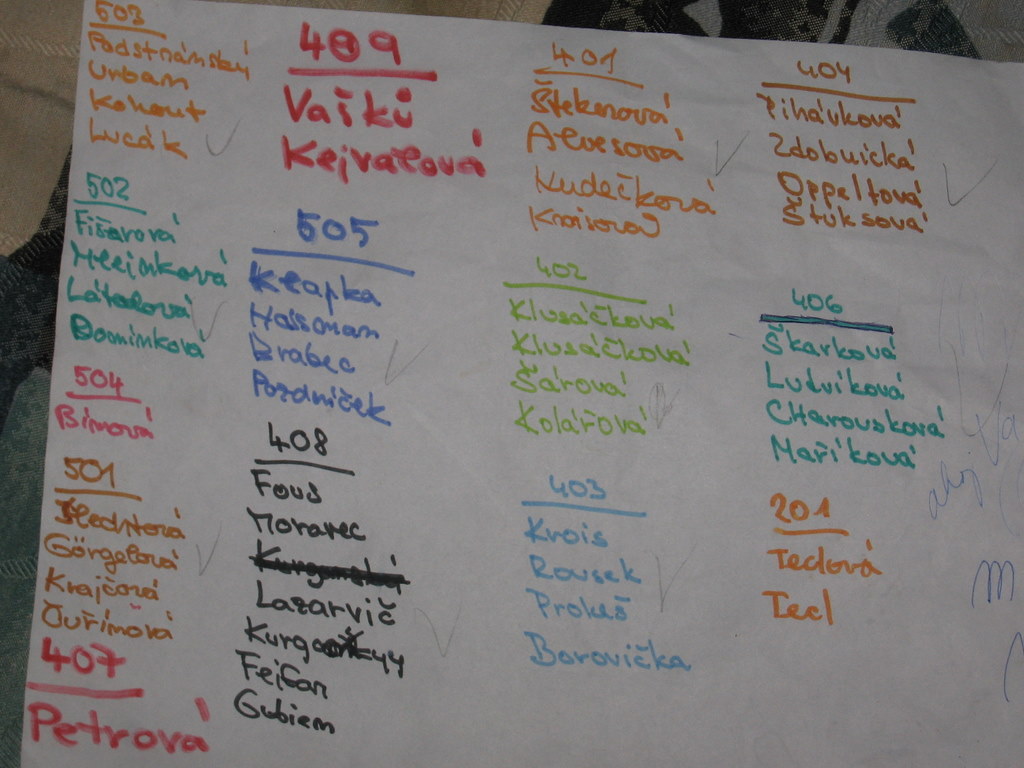 503
Podstránský
Urban
Kohout
Lucák
502
Fišarová
Hlejnková
Látalová
Dominiková
504
Bímová
501
Šlechtová
Görgelová
Krajčová
Ouřímová
407
Petrová
409
Vašků
Kejvalová
505
Klapka
Haisman
Brabec
Pozdníček
408
Fous
Moravec
Lazarvič
Fejfar
Gubiem
401
Štekerová
Alvesová
Kudečková
Kraisová
402
Klusáčková
Klusáčková
Šárová
Kolářová
403
Krois
Rousek
Prokeš
Borovička
404
Tihávková
Zdobnická
Oppeltová
Štuksová
406
Škarková
Ludvíková
Charousková
Maříková
201
Teclová
Tecl